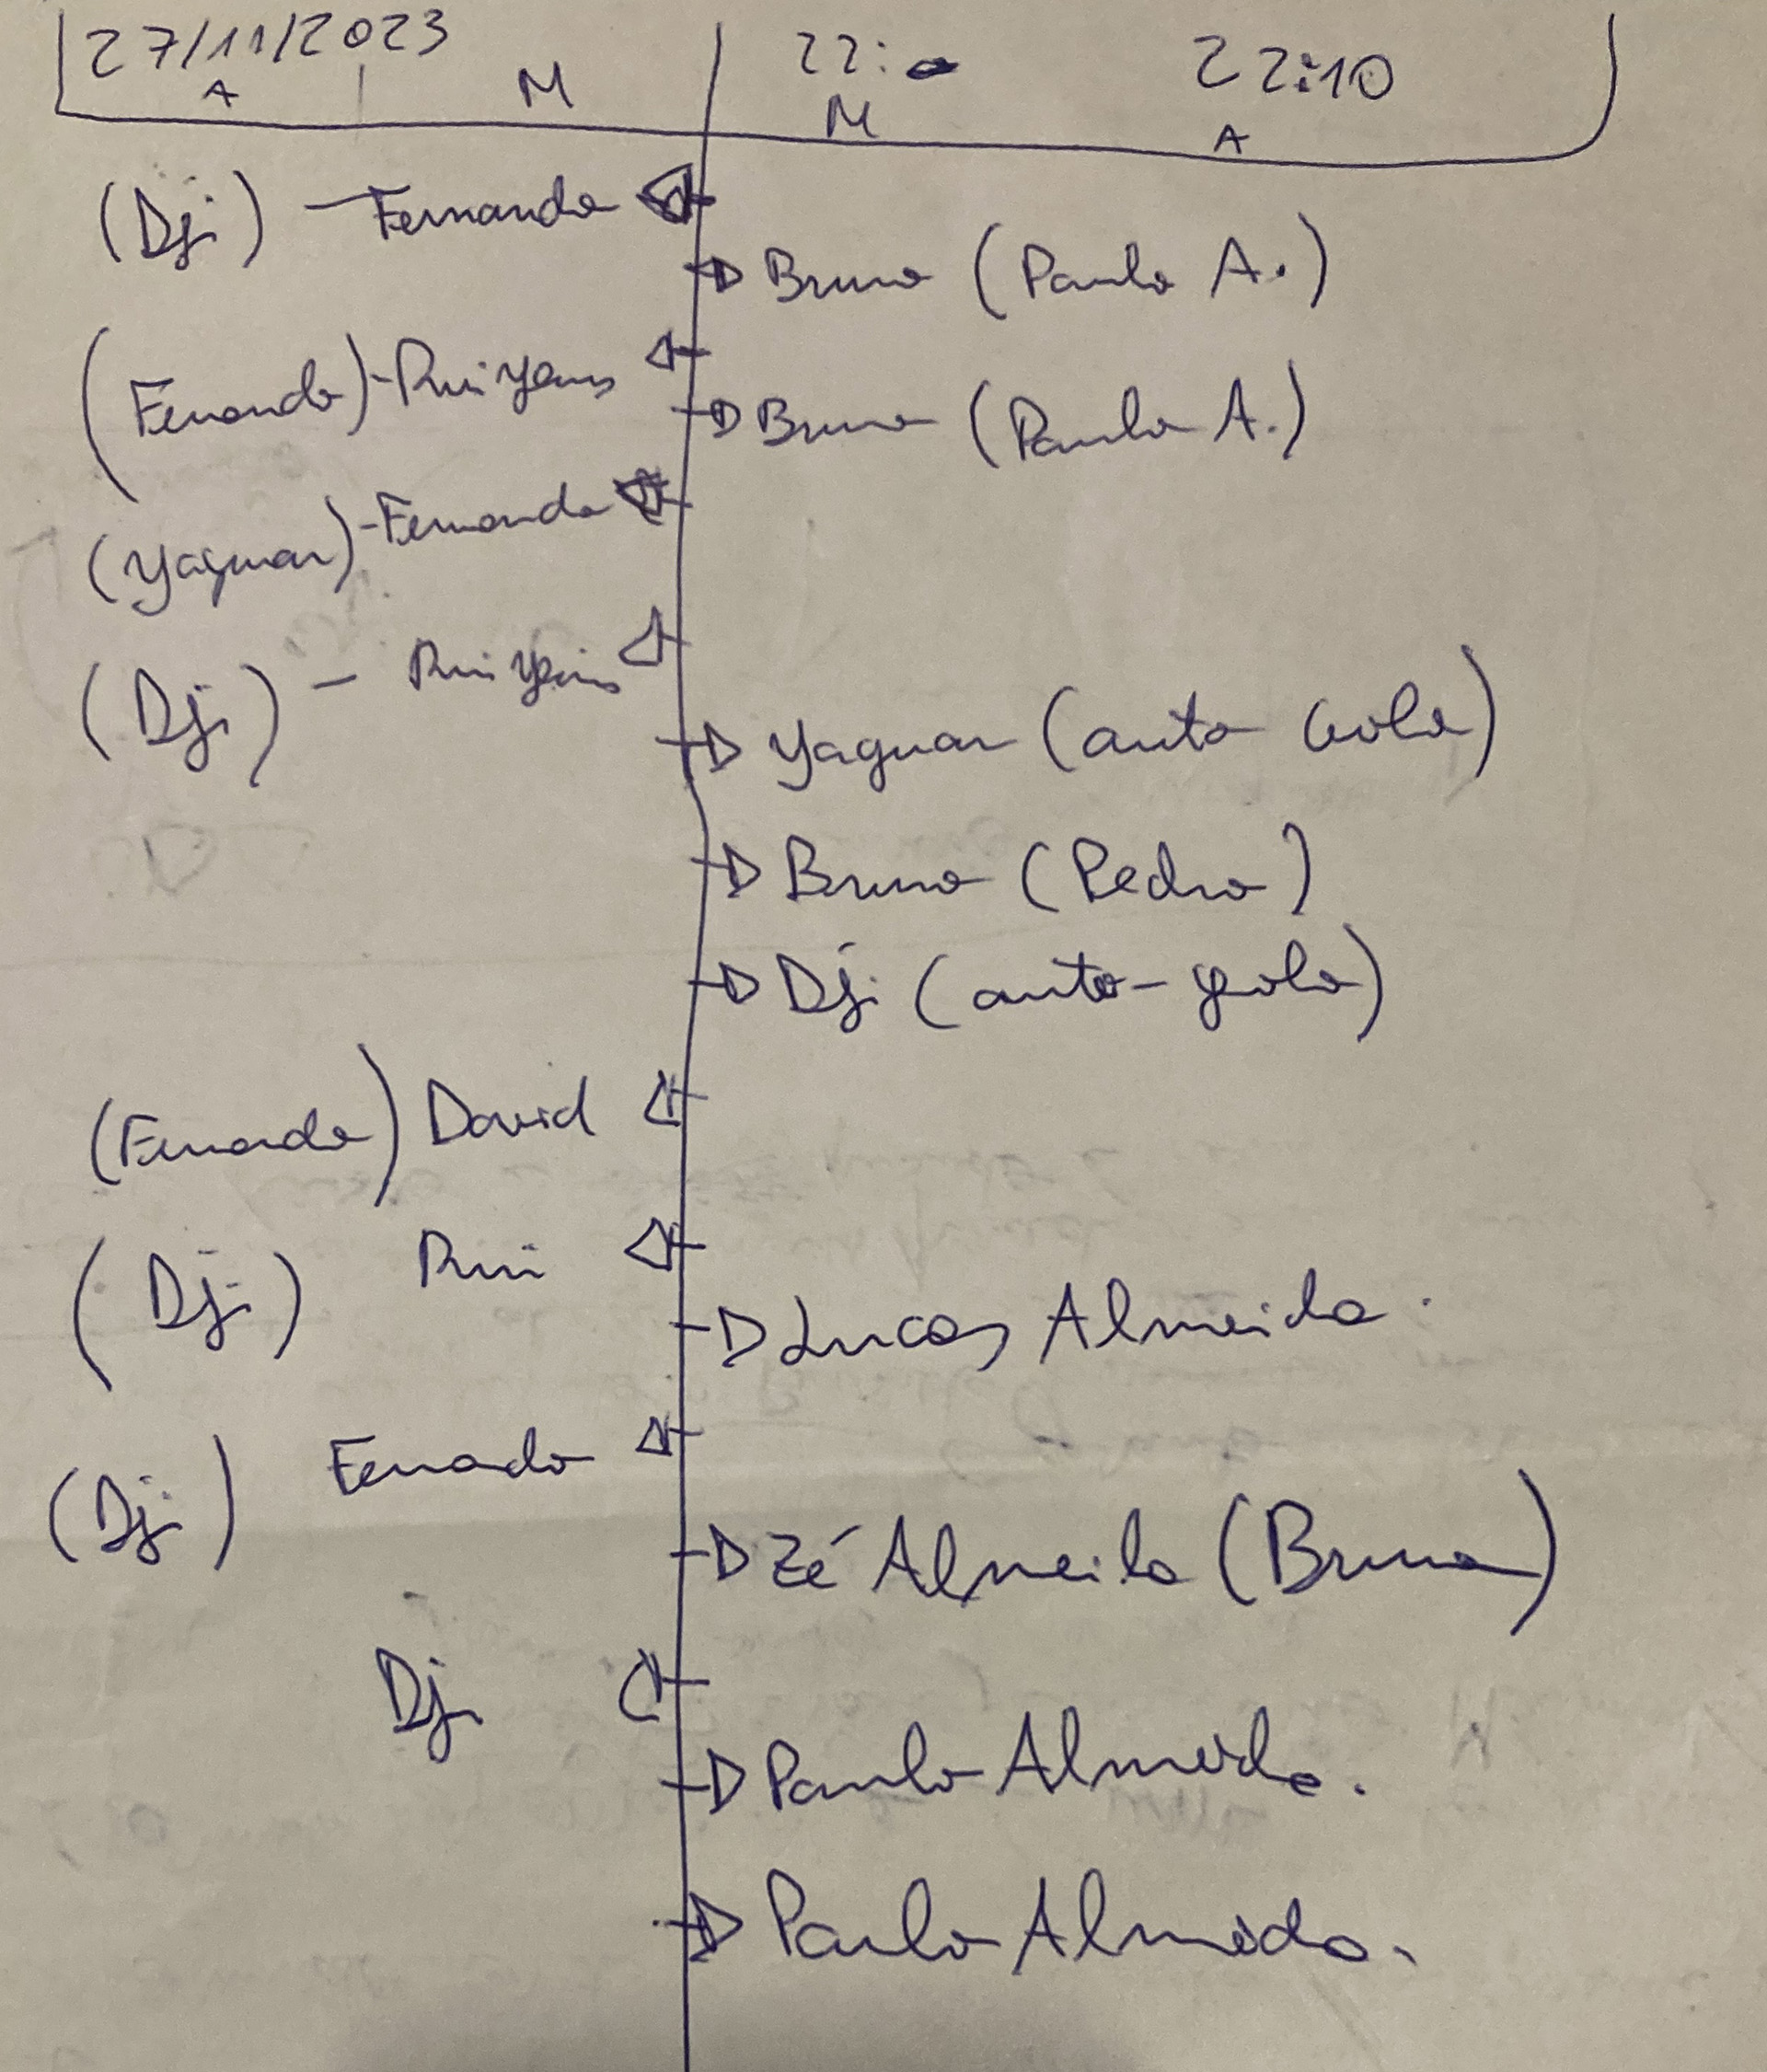 27/11/2023 22: 22:10
A M M A
(Dji) - Fernando
Bruno (Paulo A.)
(Fernando) - Rui
Bruno (Paulo A.)
(Yaguar) - Fernando
(Dji) - Rui
Yaguar (auto Golo)
Bruno (Pedro)
Dji (auto-golo)
(Fernando) David
(Dji) Rui
Lucas Almeida.
(Dji) Fernando
Zé Almeida (Bruno)
Dji
Paulo Almeida.
Paulo Almeida.